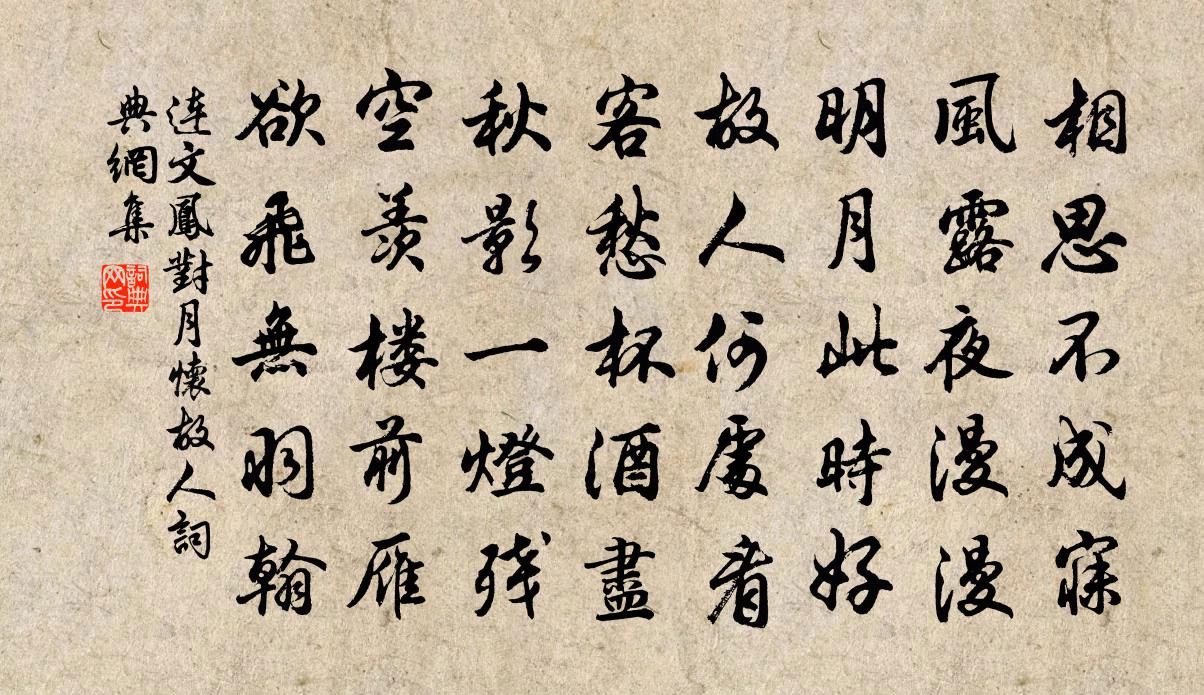 相思不成寐
風露夜漫漫
明月此時好
故人何處看
客愁杯酒盡
秋影一燈残
空羨楼前雁
欲飛無羽翰
连文鳳對月懷故人詞
典網集
詞典
网印